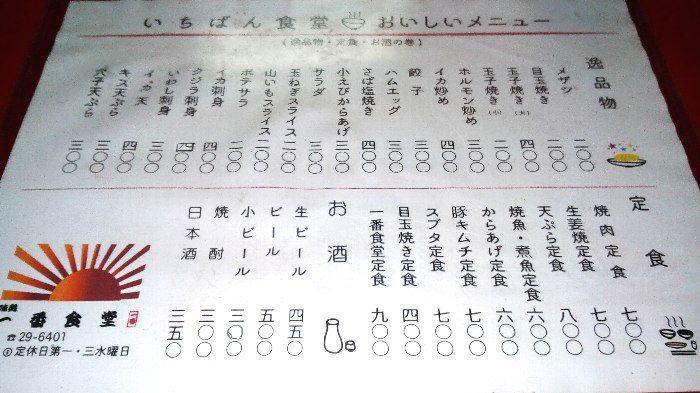 いちばん食堂 おいしいメニュー
(逸品物・定食・お酒の巻)
逸品物
メザシ 二〇〇
目玉焼き 二〇〇
玉子焼き(大) 四〇〇
玉子焼き(小) 二〇〇
ホルモン炒め 五〇〇
イカ炒め 四〇〇
餃子 三〇〇
ハムエッグ 三〇〇
さば塩焼き 四〇〇
小えびからあげ 三〇〇
サラダ 三〇〇
玉ねぎスライス 二〇〇
山いもスライス 二〇〇
ポテサラ 二〇〇
イカ刺身 四〇〇
クジラ刺身 四〇〇
いわし刺身 三〇〇
イカ天 三〇〇
キス天ぷら 四〇〇
穴子天ぷら 三〇〇
定食
焼肉定食 七〇〇
生姜焼定食 七〇〇
天ぷら定食 八〇〇
焼魚・煮魚定食 六〇〇
からあげ定食 六〇〇
豚キムチ定食 七〇〇
スブタ定食 七〇〇
目玉焼き定食 四〇〇
一番食堂定食 九〇〇
お酒
生ビール 四五〇
ビール 五〇〇
小ビール 三〇〇
焼酎 三〇〇
日本酒 三五〇
一番食堂
☎29-6401
定休日第一・三水曜日